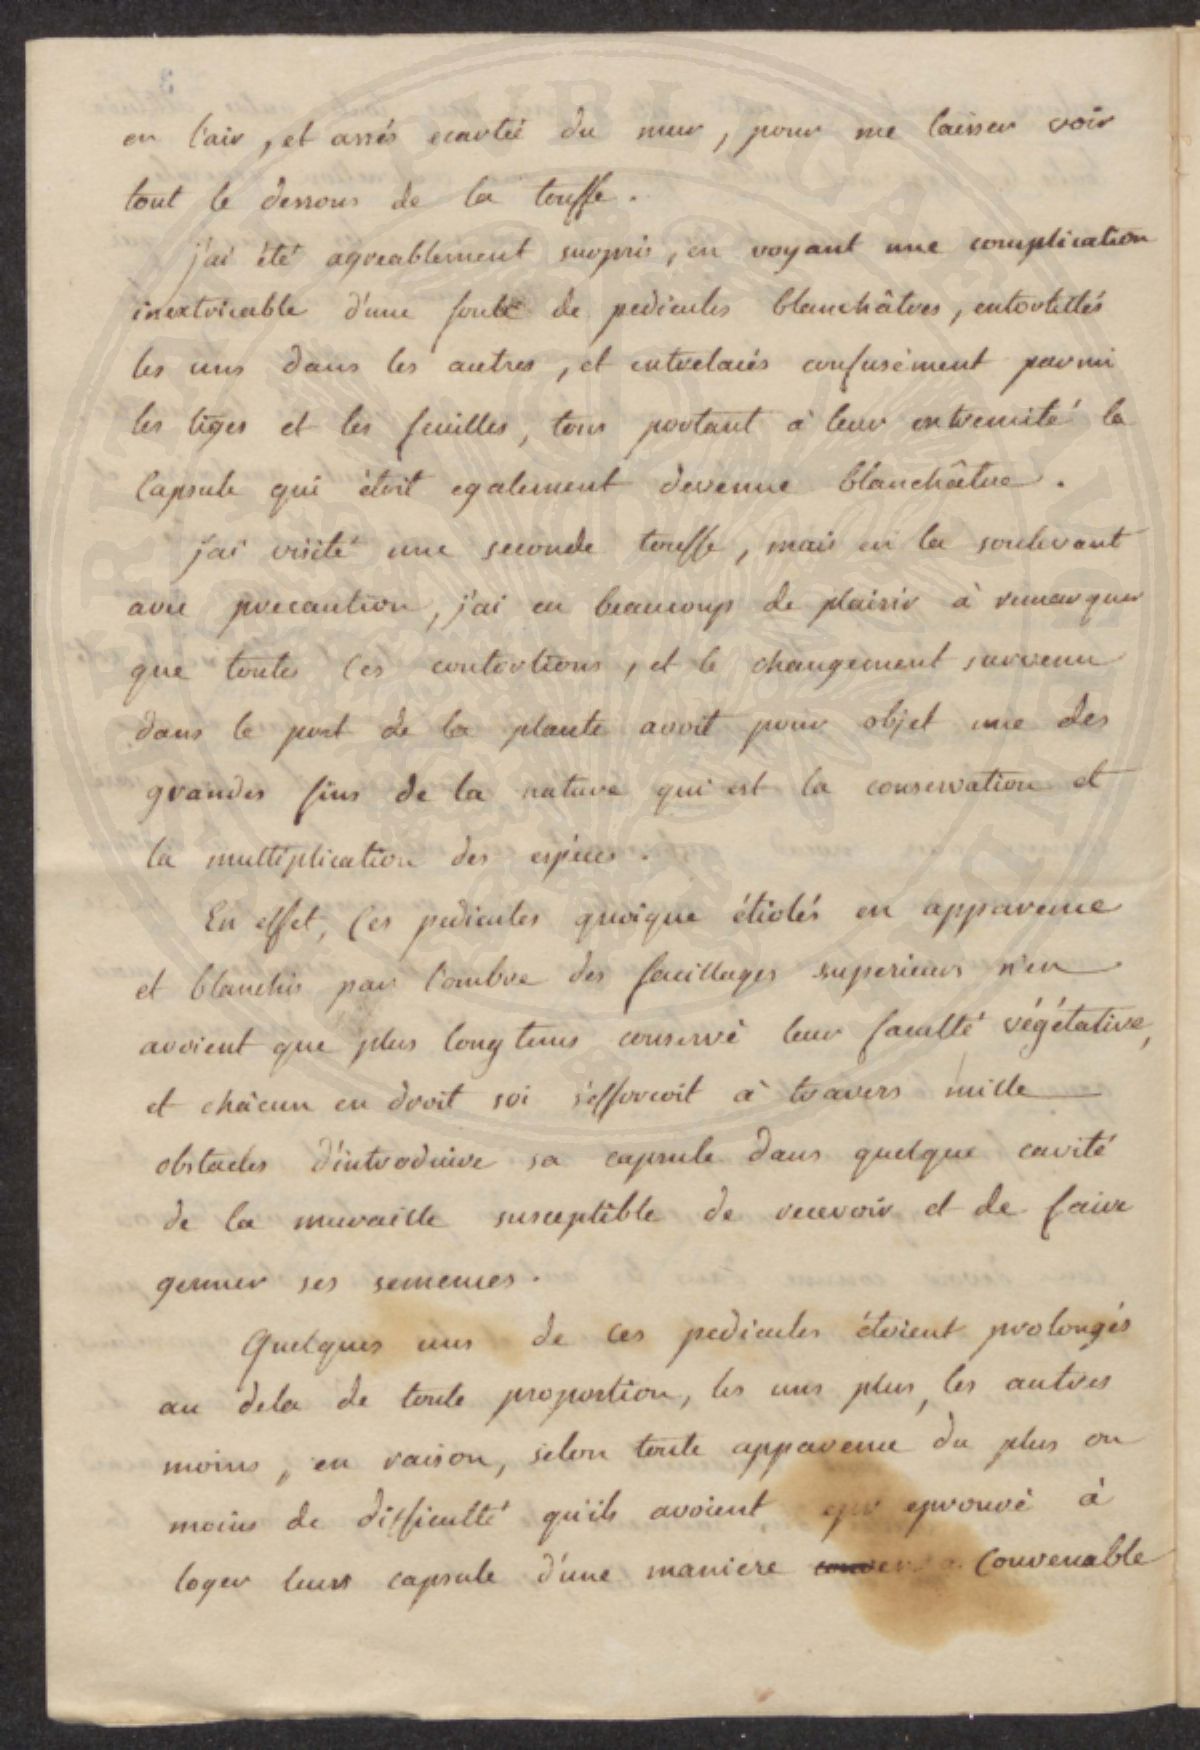 en l'air, et assés ecartée du mur, pour me laisser voir
tout le dessous de la touffe.
j'ai été agreablement surpris, en voyant une complication
inextricable d'une foule de pedicules blanchâtres, entortillés
les uns dans les autres, et entrelacés confusément parmi
les tiges et les feuilles, tous portant à leur extremité la
Capsule qui étoit egalement devenue blanchâtre.
j'ai visité une seconde touffe, mais en la soulevant
avec precaution, j'ai eu beaucoup de plaisir à remarquer
que toutes ces contortions, et le changement survenu
dans le port de la plante avoit pour objet une des
grandes fins de la nature qui est la conservation et
la multiplication des espéces.
En effet, Ces pedicules quoique étiolés en apparence
et blanchis par l'ombre des feuillages superieurs n'en
avoient que plus long tems conservé leur faculté végétative,
et châcun en droit soi s'efforcoit à travers mille
obstacles d'introduire sa capsule dans quelque cavité
de la muraille susceptible de recevoir et de faire
germer ses semences.
Quelques uns de ces pedicules étoient prolongés
au dela de toute proportion, les uns plus, les autres
moins, en raison, selon toute apparence du plus ou
moins de difficulté qu'ils avoient epr eprouvé à
loger leurs capsule d'une maniere Convenable